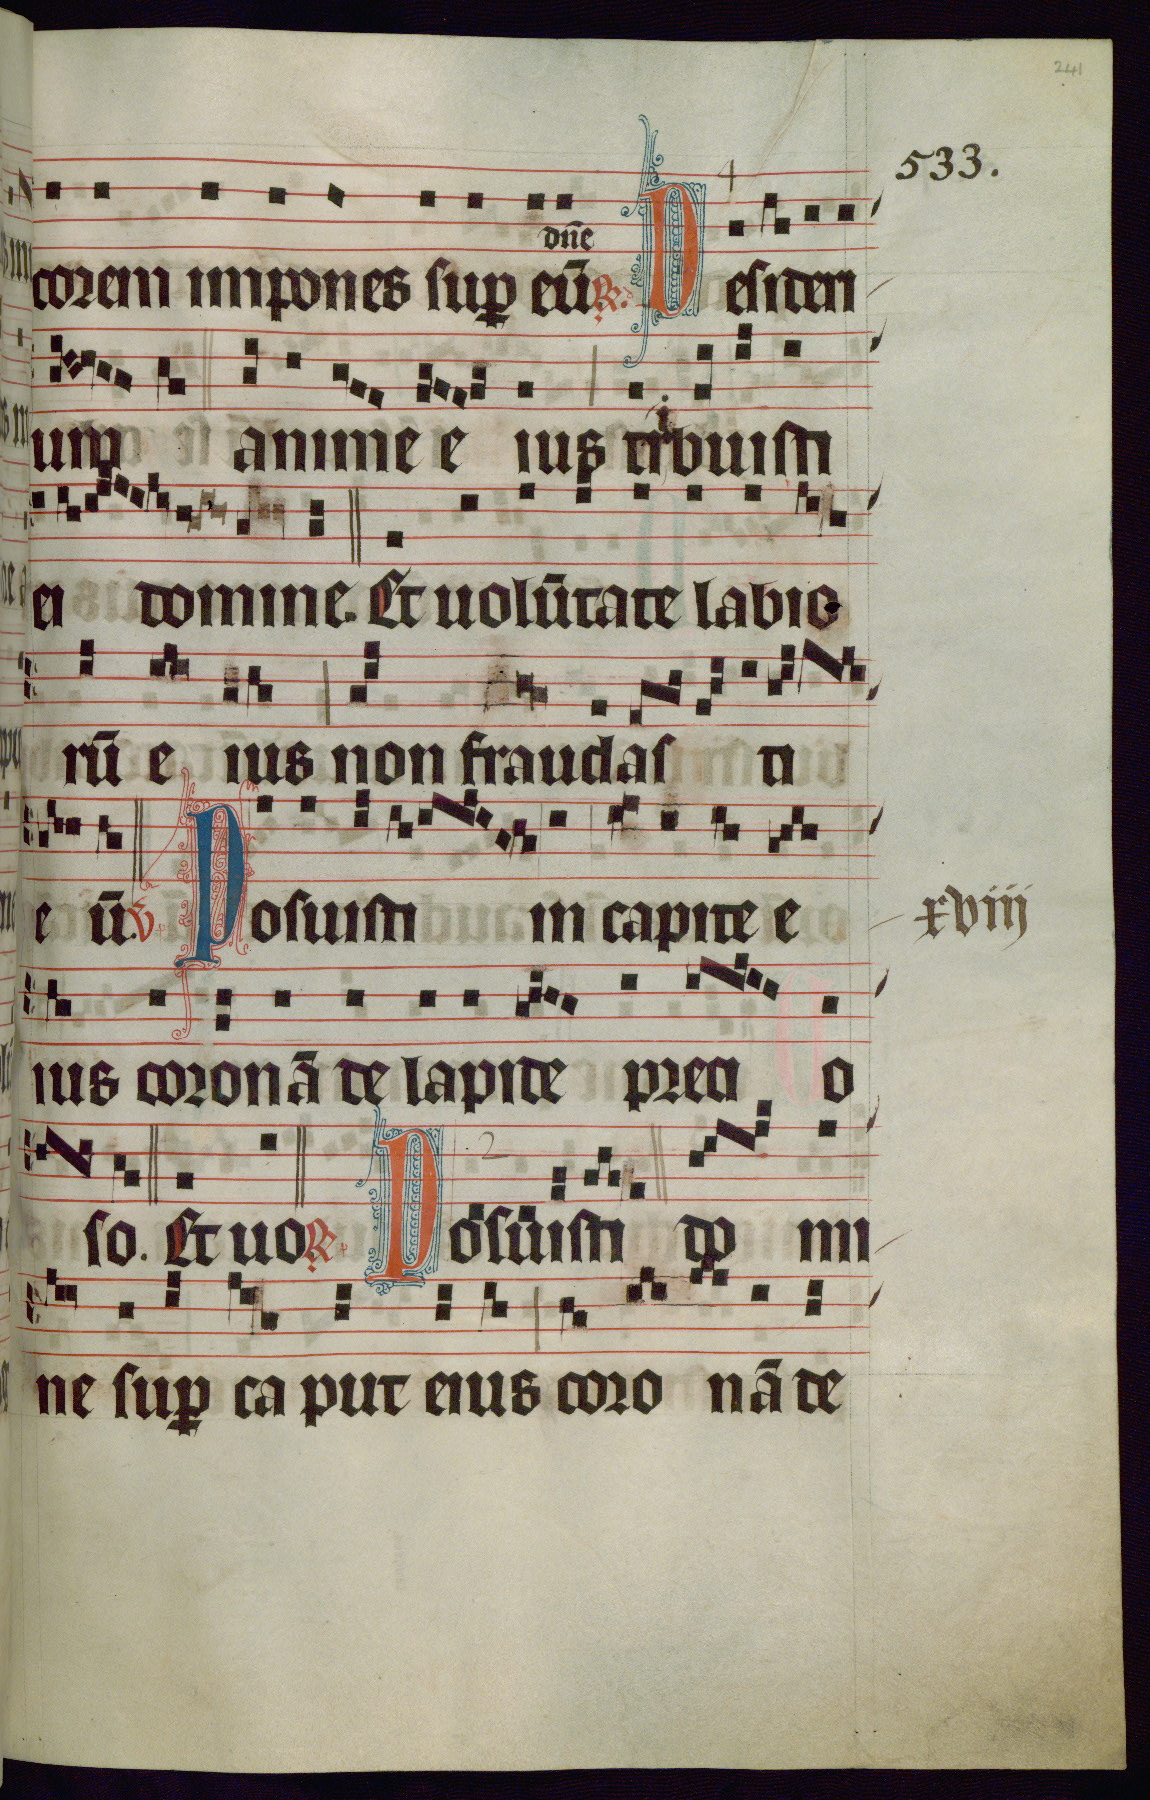 241
533.
4
dñe
corem impones sup eū ℟. Desideri
um anime e ius tribuisti
ei domine. Et uolūtate labio
rū e ius non fraudas ti
e ū. ℣. Posuisti in capite e
xviii
ius coronā de lapide preci o
2
so. Et uo ℟. Posuisti do mi
ne sup ca put eius coro nā de